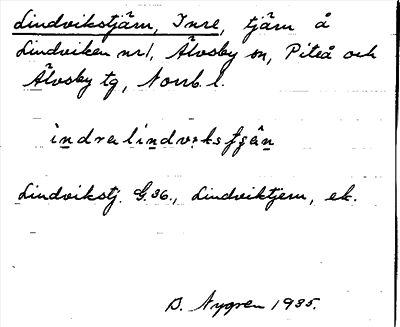 Lindvikstjärn, Inre, tjärn å
Lindviken nr 1, Älvsby sn, Piteå och
Älvsby tg, Norrb. l.
indra lindvɩksfʂä̂n
Lindvikstj. G.36., Lindviktjern, ek.
D. Nygren 1935.